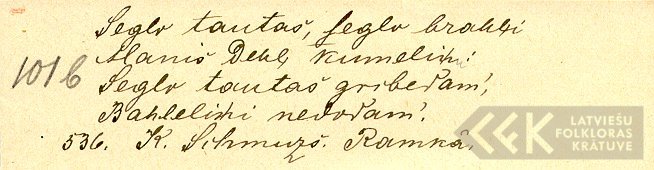 Seglo tautaš, seglo brahļi
Maniš Dehļ kumeliņi:
101b
Seglo tautaš gribedam',
Bahleliņi nedodam'.
536. K. Schmuzš. Ramkâ.
LATVIEŠU
FOLKLORAS
KRĀTUVE